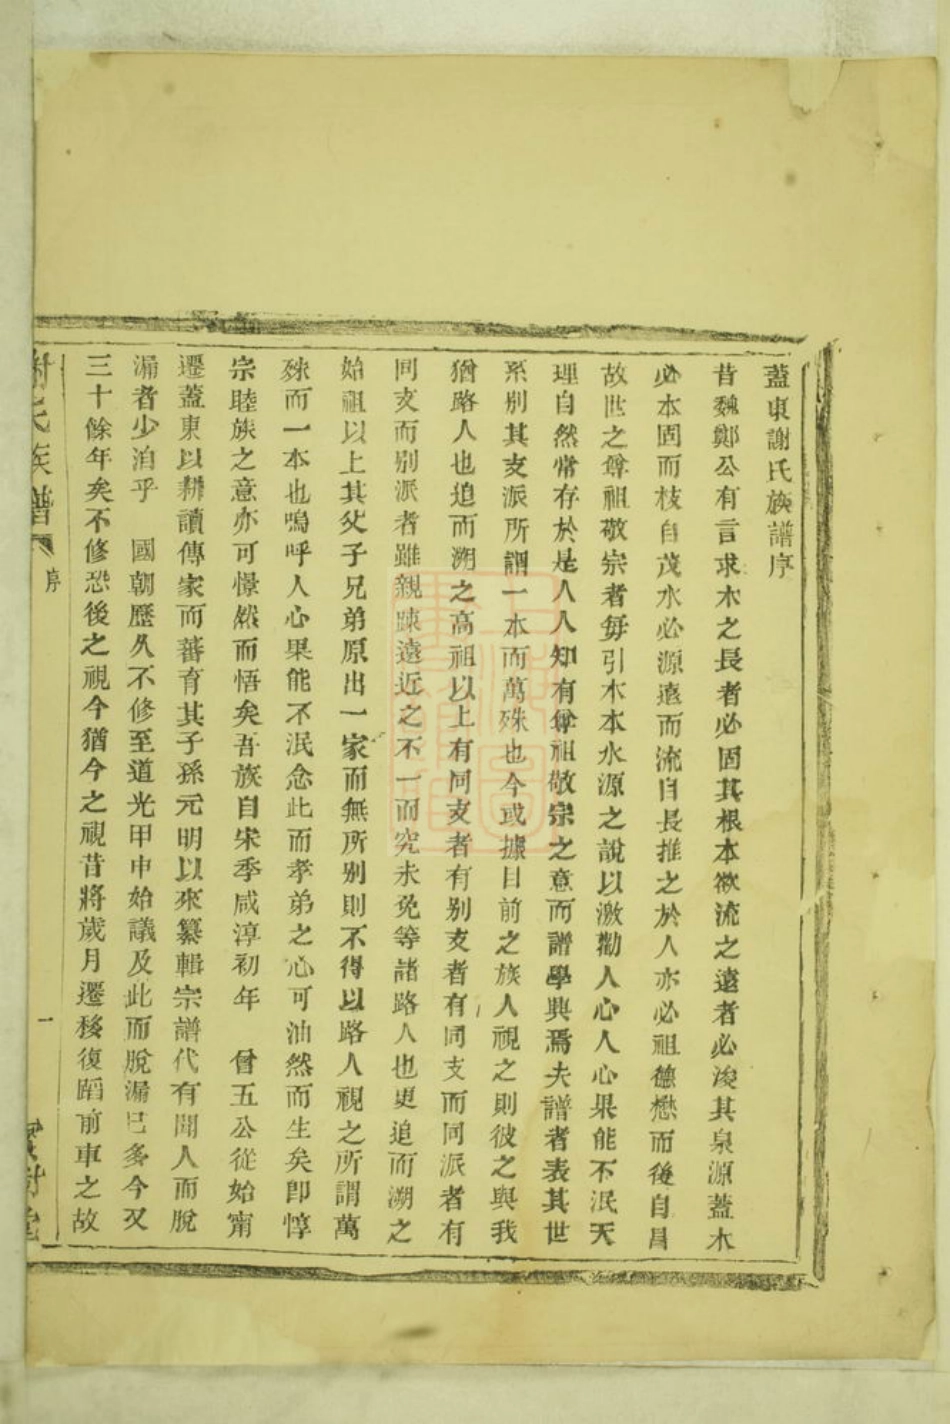 蓋東謝氏族譜序
昔魏鄭公有言求木之長者必固其根本欲流之遠者必浚其泉源蓋木
必本固而枝自茂水必源遠而流自長推之於人亦必祖德懋而後自昌
故世之尊祖敬宗者每引木本水源之說以激勸人心人心果能不泯天
理自然常存於是人人知有尊祖敬宗之意而譜學興焉夫譜者表其世
系別其支派所謂一本而萬殊也今或據目前之族人視之則彼之與我
猶路人也追而溯之高祖以上有同支者有别支者有同支而同派者有
同支而别派者雖親踈遠近之不一而究未免等諸路人也更追而溯之
始祖以上其父子兄弟原出一家而無所别則不得以路人視之所謂萬
殊而一本也嗚呼人心果能不泯念此而孝弟之心可油然而生矣即惇
宗睦族之意亦可憬然而悟矣吾族自宋季咸淳初年 曾五公從始甯
遷蓋東以耕讀傳家而蕃育其子孫元明以來纂輯宗譜代有聞人而脫
漏者少洎乎 國朝歷久不修至道光甲申始議及此而脫漏已多今又
三十餘年矣不修恐後之視今猶今之視昔將歲月遷移復蹈前車之故
謝氏族譜
序
一
樹堂